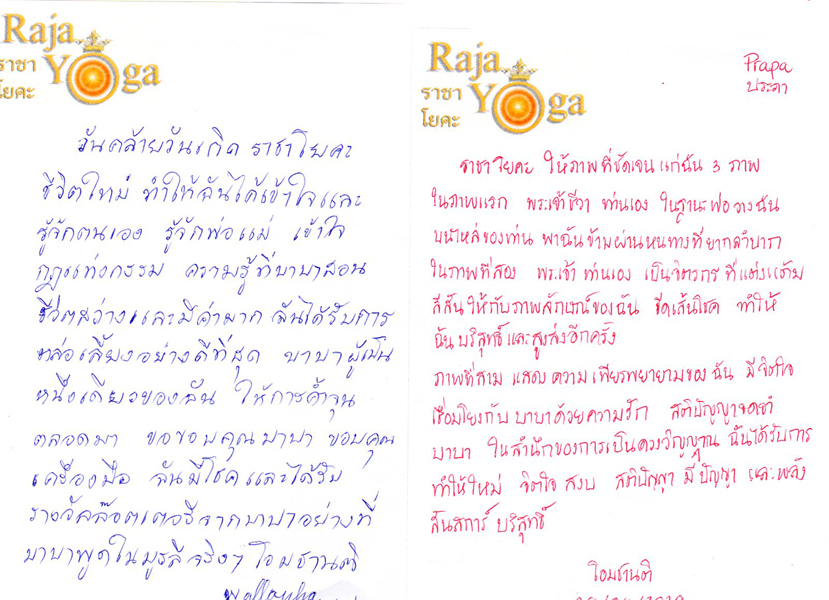 Raja
ราชา Yoga
โยคะ
วันคล้ายวันเกิด ราชาโยคะ
ชีวิตใหม่ ทำให้ฉันได้เข้าใจและ
รู้จักตนเอง รู้จักพ่อแม่ เข้าใจ
กฎแห่งกรรม ความรู้ที่บาบาสอน
ชีวิตสว่างและมีค่ามาก ฉันได้รับการ
หล่อเลี้ยงอย่างดีที่สุด บาบาผู้เป็น
หนึ่งเดียวของฉัน ให้การค้ำจุน
ตลอดมา ขอขอบคุณบาบา ขอบคุณ
เครื่องมือ ฉันมีโชคและได้รับ
รางวัลล๊อตเตอรี่จากบาบาอย่างที่
บาบาพูดในมูรลีจริงๆ โอมชานติ
Raja
ราชา Yoga
โยคะ
Prapa
ประภา
ราชาโยคะ ให้ภาพที่ชัดเจนแก่ฉัน 3 ภาพ
ในภาพแรก พระเจ้าชีวา ท่านเอง ในฐานะพ่อวางฉัน
บนบ่าไหล่ของท่าน พาฉันข้ามผ่านหนทางที่ยากลำบาก
ในภาพที่สอง พระเจ้า ท่านเอง เป็นจิตรกร ที่แต่งแต้ม
สีสันให้กับภาพลักษณ์ของฉัน ขีดเส้นโชค ทำให้
ฉันบริสุทธิ์และสูงส่งอีกครั้ง
ภาพที่สาม แสดงความเพียรพยายามของฉัน มีจิตใจ
เชื่อมโยงกับบาบาด้วยความรัก สติปัญญาจดจำ
บาบา ในสำนึกของการเป็นดวงวิญญาณ ฉันได้รับการ
ทำให้ใหม่ จิตใจสงบ สติปัญญา มีปัญญา และพลัง
สันสการ์ บริสุทธิ์
โอมชานติ